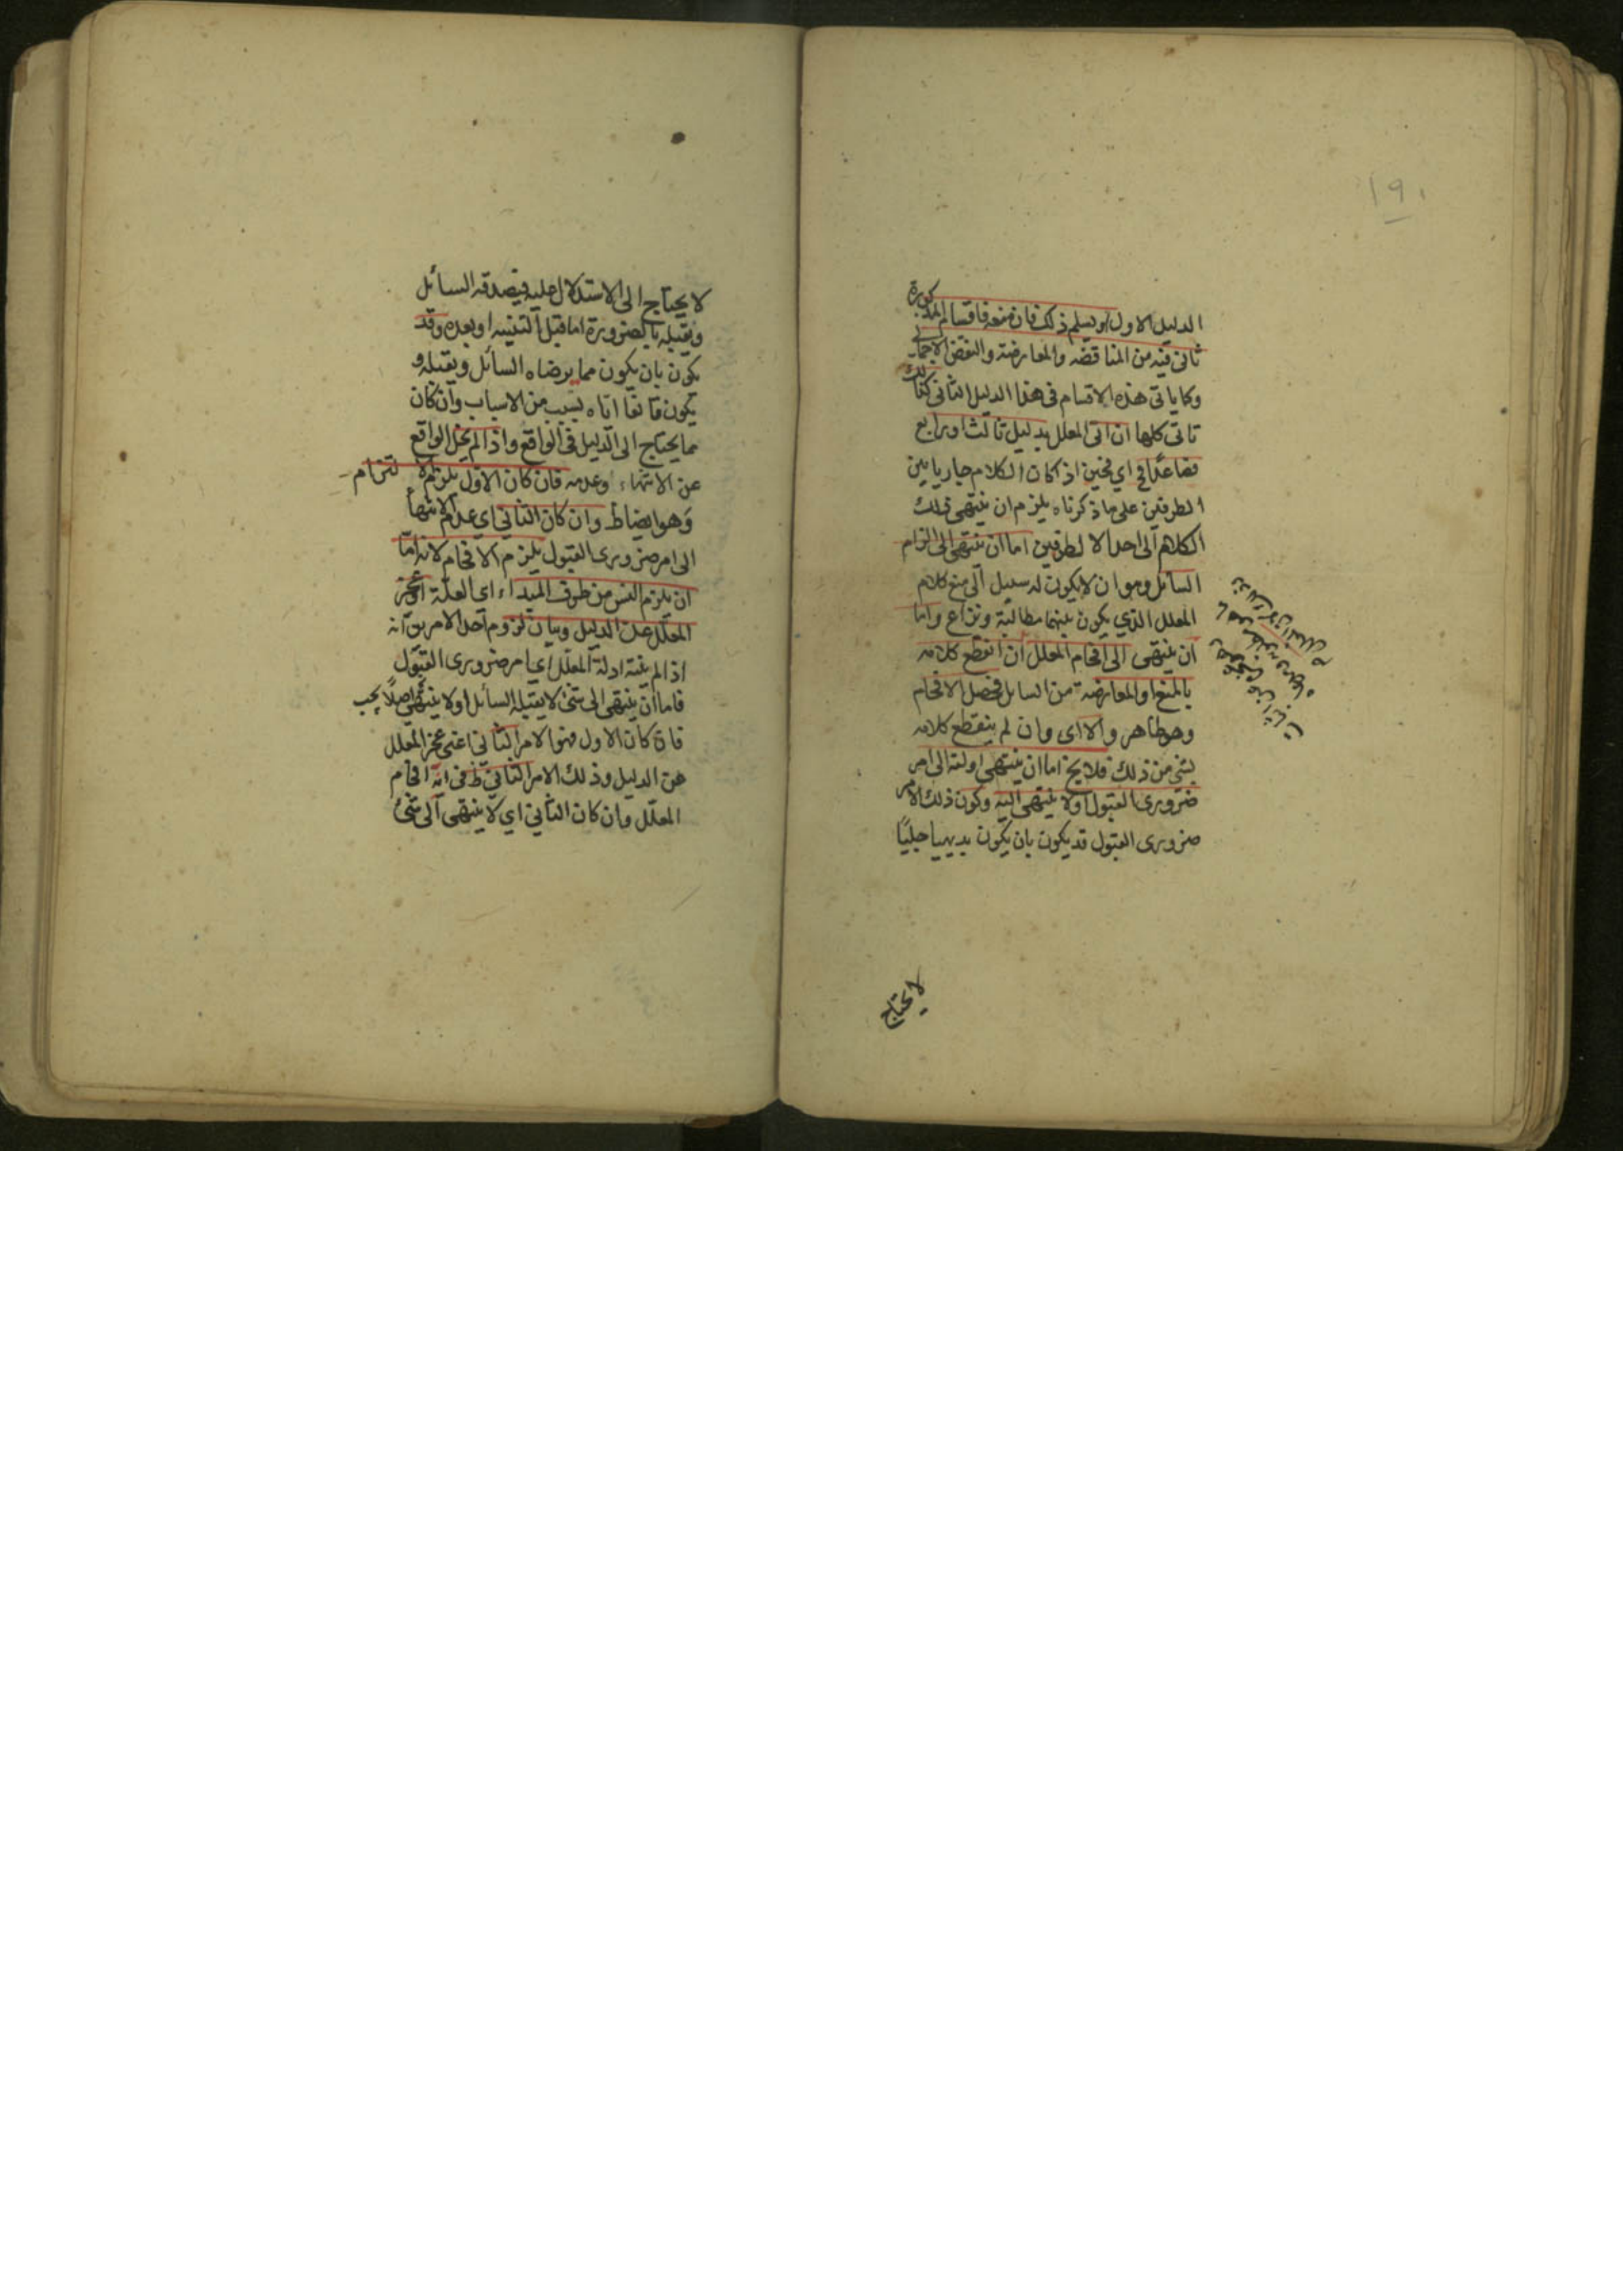 ١٩٠
الدليل الاول او يسلم ذلك فان منعه فاقسام المذكورة
تاتى فيه من المناقضه والمعارضة والنقض الاجمالى
وكما ياتى هذه الاقسام فى هذا الدليل الثانى كذلك
تاتى كلها ان اتى المعلل بدليل ثالث او رابع
فصاعدا فح اى فحين اذ كان الكلام جاريا بين
الطرفين على ما ذكرناه يلزم ان ينتهى ذلك
الكلام الى احد الا لطرفين اما ان ينتهى الى الزام
السائل وهو ان لا يكون له سبيل الى منع كلام
المعلل الذى يكون بينهما مطالبة ونزاع واما
ان ينتهى الى افحام المعلل ان انقطع كلامه
بالمنع او المعارضة من السايل فحصل الافحام
وهو ظاهر والا اى وان لم ينقطع كلامه
بشئ من ذلك فلا يخ اما ان ينتهى ادلته الى امر
ضرورى القبول اولا ينتهى اليه وكون ذلك الامر
ضرورى القبول قد يكون بان يكون بديهيا جليًا
لا يحتاج
لا يحتاج الى الاستدلال عليه فيصدقه السائل
ويقبله بالضرورة اما قبل التنبيه او بعده وقد
يكون بان يكون مما يرضاه السائل ويقبله و
يكون قانعا اياه بسبب من الاسباب وان كان
مما يحتاج الى الدليل فى الواقع واذا لم يخل الواقع
عن الانتهاء وعدمه فان كان الاول يلزم الا لتزام
وهو ايضا ظ وان كان الثانى اى عدم الانتهاء
الى امر ضرورى القبول يلزم الافحام لانه امّا
ان يلزم التس من طرف المبداء اى العلّة او عجز
المعلّل عن الدليل وبيان لزوم احد الامرين انه
اذا لم ينته ادلة المعلّل اى امر ضرورى القبول
فاما ان ينتهى الى شئ لا يقبله السائل او لا ينتهى اصلاً يجب
فان كان الاول فهو الامر الثانى اعنى عجز المعلل
عن الدليل وذلك الامر الثانى ظ فى انه افحام
المعلّل وان كان الثانى اى لا ينتهى الى شئ